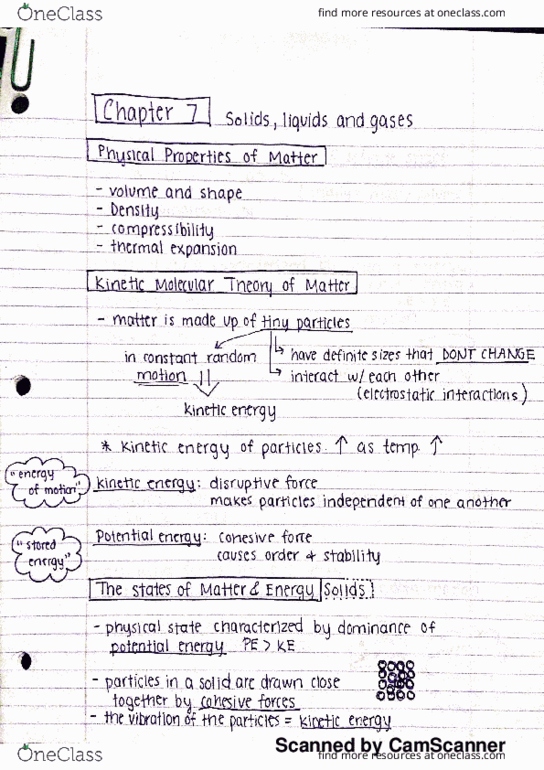 OneClass
find more resources at oneclass.com
Chapter 7 Solids, liquids and gases
Physical Properties of Matter
- volume and shape
- Density
- compressibility
- thermal expansion
Kinetic Molecular Theory of Matter
- matter is made up of tiny particles
in constant random
motion
have definite sizes that DONT CHANGE
interact w/ each other
(electrostatic interactions)
kinetic energy
* Kinetic energy of particles ↑ as temp ↑
"energy
of motion"
kinetic energy: disruptive force
makes particles independent of one another
"stored
energy"
Potential energy: cohesive force
causes order & stability
The states of Matter & Energy Solids
- physical state characterized by dominance of
potential energy PE > KE
- particles in a solid are drawn close
together by cohesive forces
- the vibration of the particles = kinetic energy
Scanned by CamScanner
OneClass
find more resources at oneclass.com